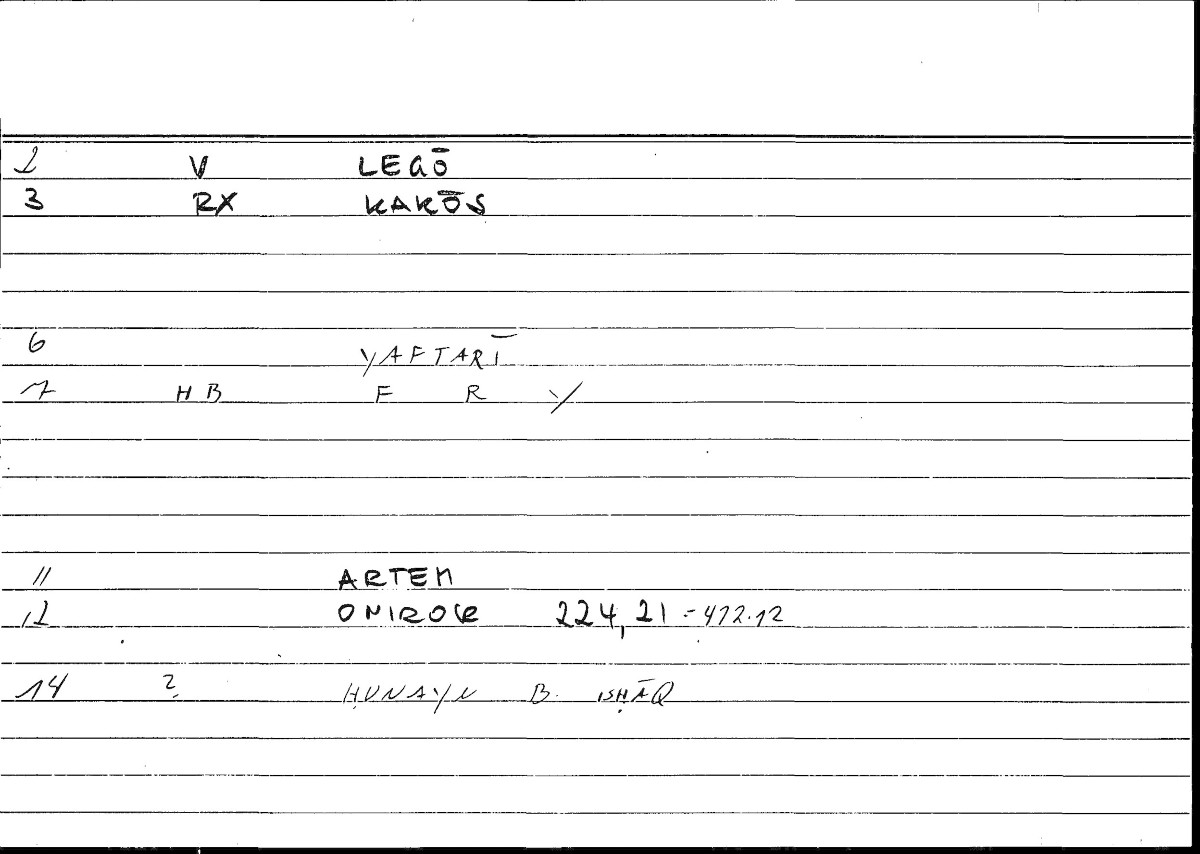 2 V LEGŌ
3 RX KAKŌS
6 YAFTARĪ
7 HB F R Y
11 ARTEM
12 ONIROCR 224,21 = 472.12
14 ? ḤUNAYN B. ISḤĀQ